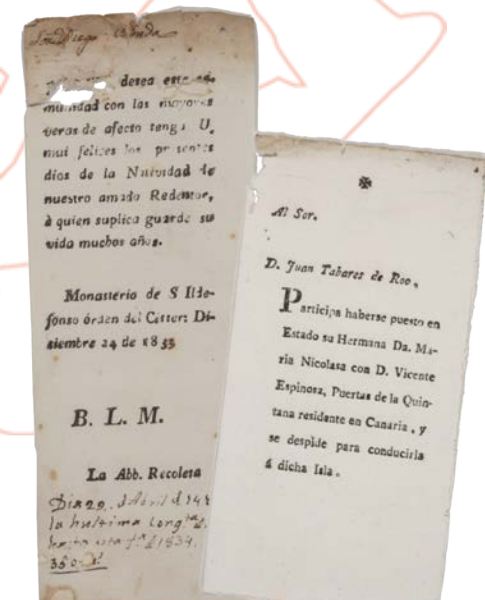 Son Diego
desea esta co-
munidad con las mayores
veras de afecto tenga U.
mui felices los presentes
dios de la Natividad de
nuestro amado Redentor,
à quien suplica guarde su
vida muchos años.
Monasterio de S Ilde-
fonso órden del Cister: Di-
siembre 24 de 1833
B. L. M.
La Abb. Recoleta
Dia 29. d Abril d
la hultima
hasta d 1834.
Al Sor.
D. Juan Tabares de Roo,
Participa haberse puesto en
Estado su Hermana Da. Ma-
ria Nicolasa con D. Vicente
Espinosa, Puertas de la Quin-
tana residente en Canaria, y
se despide para conducirla
á dicha Isla.